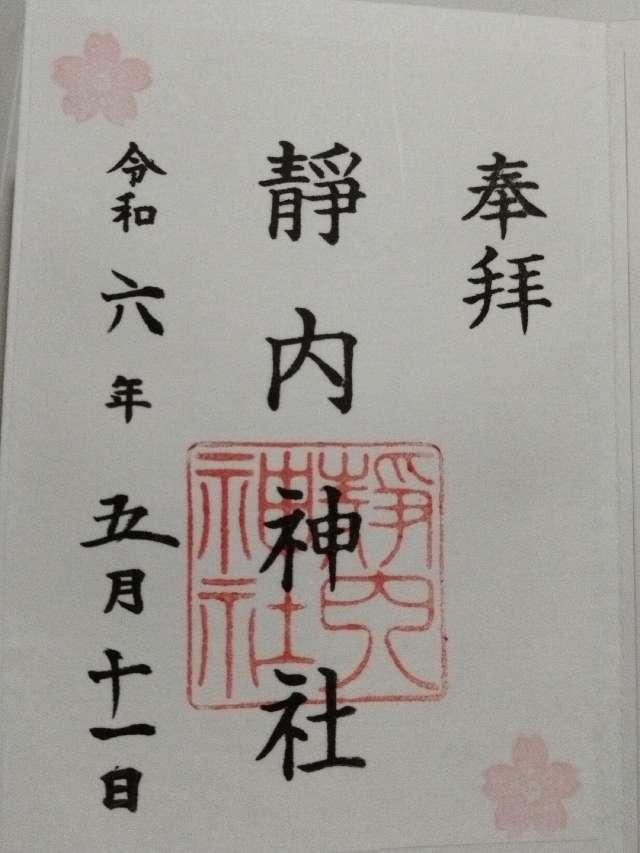 奉拝
靜内神社
靜内神社
令和六年五月十一日